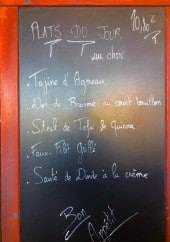 PLATS DU JOUR
10,80€
au choix
. Tajine d'Agneau
. Dos de Brosme au court bouillon
. Steak de Tofu & Quinoa
. Faux-Filet Grillé
. Sauté de Dinde à la crème
Bon
Appétit